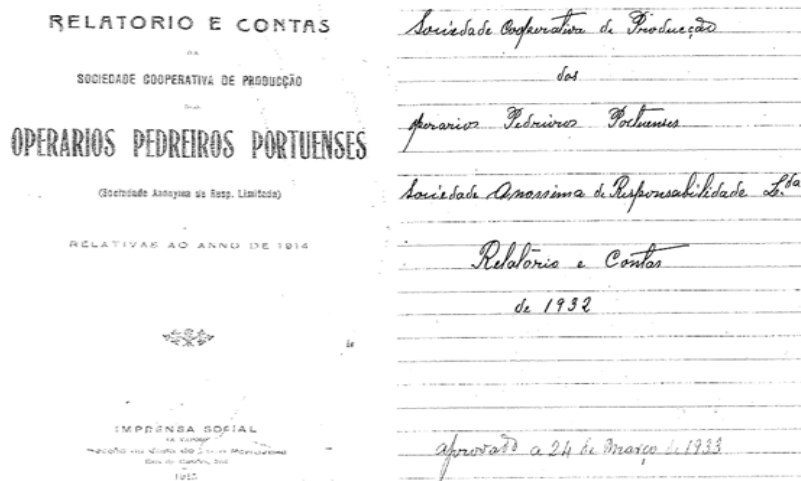 RELATORIO E CONTAS
DA
SOCIEDADE COOPERATIVA DE PRODUCÇÃO
DOS
OPERARIOS PEDREIROS PORTUENSES
(Sociedade Anonyma de Resp. Limitada)
RELATIVAS AO ANNO DE 1914
IMPRENSA SOCIAL
1915
Sociedade Cooperativa de Producção
dos
operarios Pedreiros Portuenses
Sociedade Anonima de Responsabilidade L.da
Relatório e Contas
de 1932
aprovado a 24 de Março de 1933